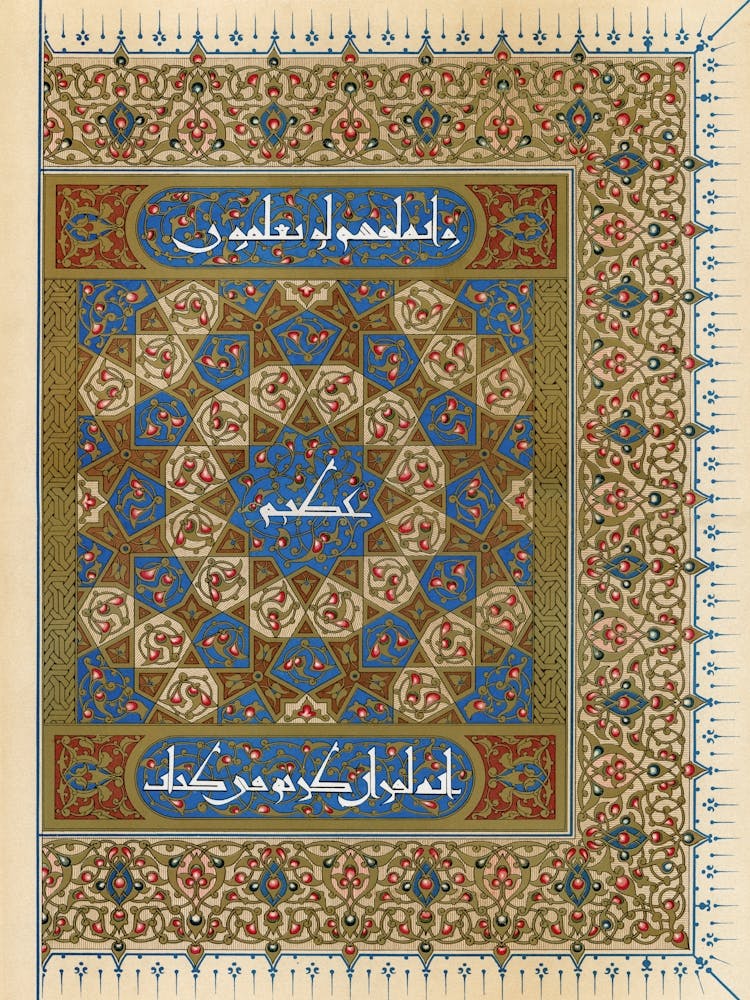 وانه لقسم لو تعلمون
عظيم
انه لقران كريم في كتاب